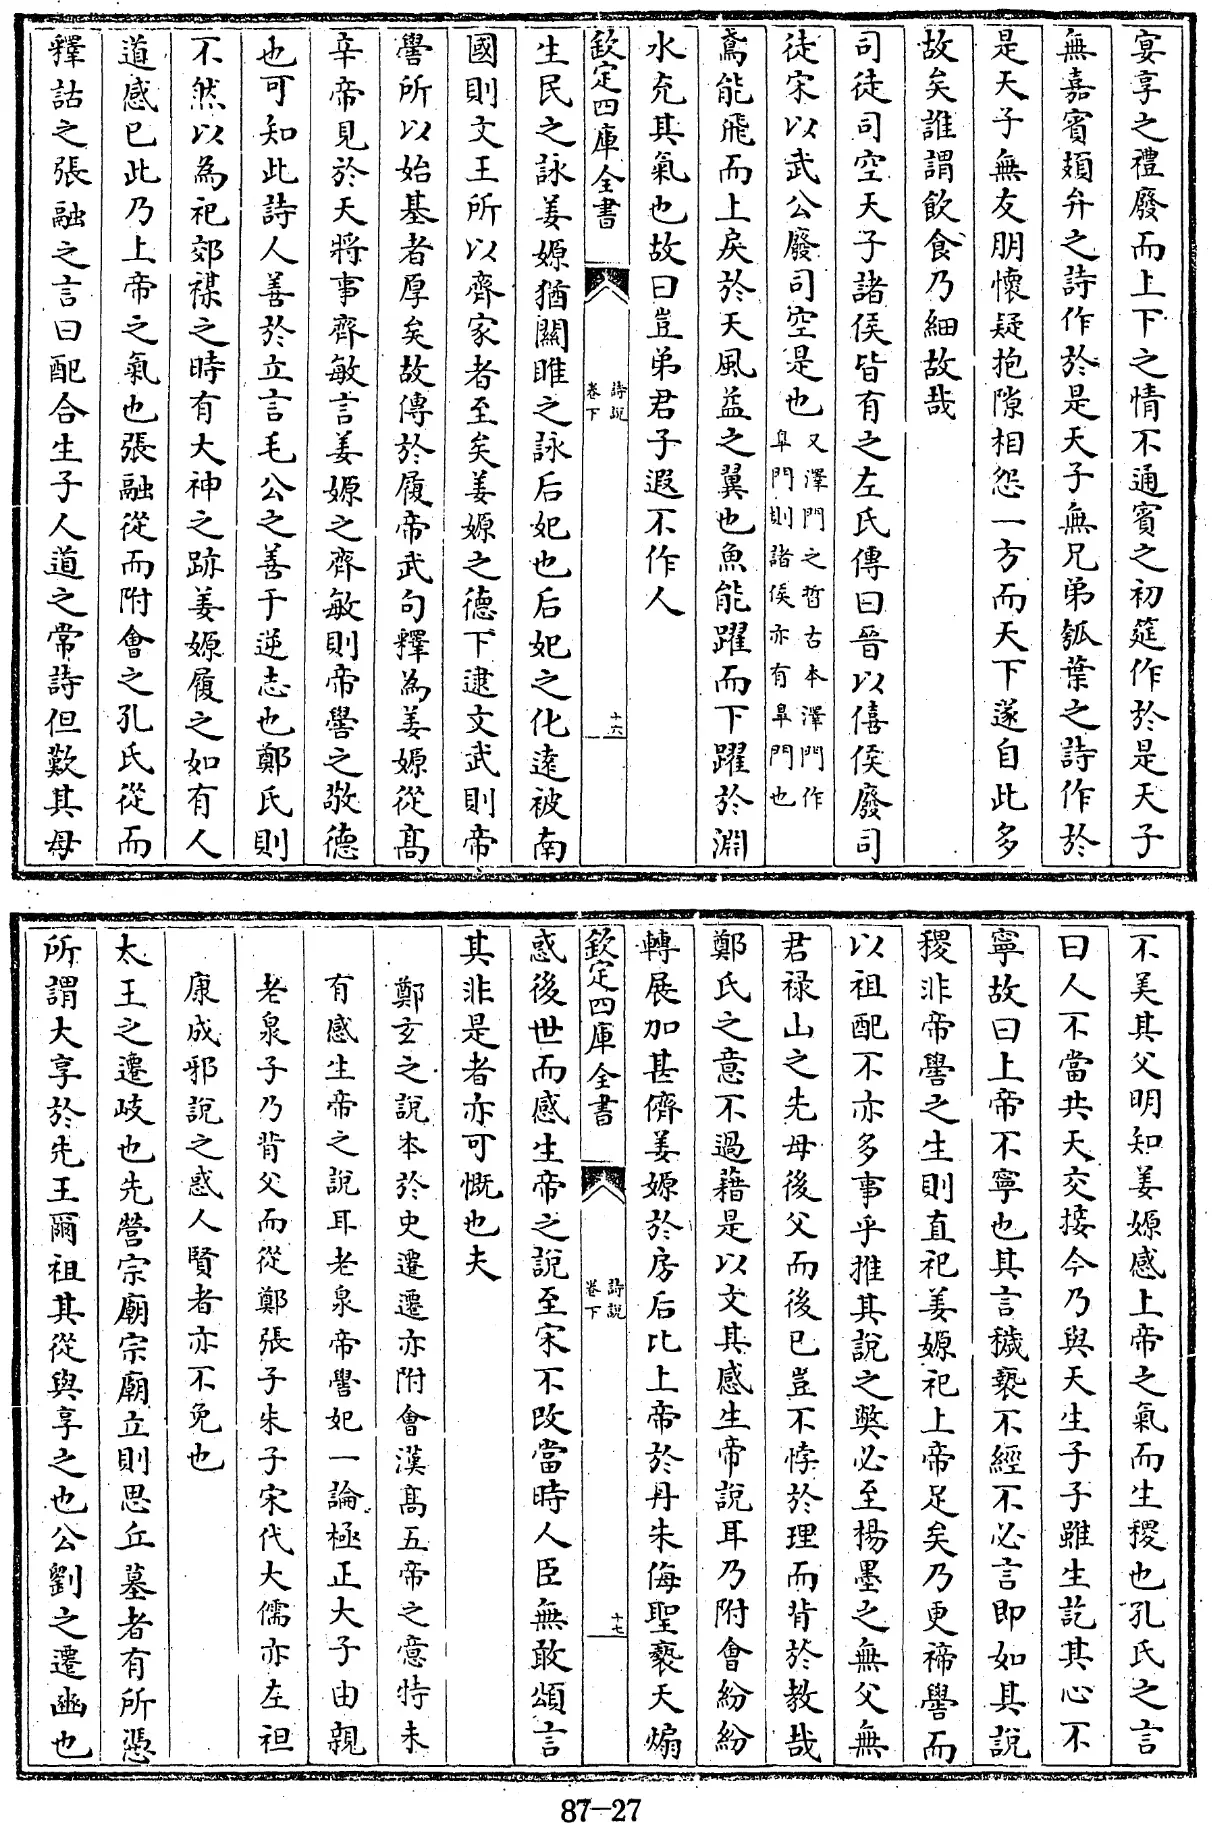 宴享之禮廢而上下之情不通賓之初筵作於是天子
無嘉賓頍弁之詩作於是天子無兄弟瓠葉之詩作於
是天子無友朋懷疑抱隙相怨一方而天下遂自此多
故矣誰謂飲食乃細故哉
司徒司空天子諸侯皆有之左氏傳曰晉以僖侯廢司
徒宋以武公廢司空是也又澤門之晳古本澤門作
臯門則諸侯亦有臯門也
鳶能飛而上戾於天風益之翼也魚能躍而下躍於淵
水充其氣也故曰豈弟君子遐不作人
欽定四庫全書
詩說
卷下
十六
生民之詠姜嫄猶關雎之詠后妃也后妃之化逺被南
國則文王所以齊家者至矣姜嫄之德下逮文武則帝
嚳所以始基者厚矣故傳於履帝武句釋為姜嫄從髙
辛帝見於天將事齊敏言姜嫄之齊敏則帝嚳之敬德
也可知此詩人善於立言毛公之善于逆志也鄭氏則
不然以為祀郊禖之時有大神之跡姜嫄履之如有人
道感已此乃上帝之氣也張融從而附會之孔氏從而
釋詁之張融之言曰配合生子人道之常詩但歎其母
不美其父明知姜嫄感上帝之氣而生稷也孔氏之言
曰人不當共天交接今乃與天生子子雖生訖其心不
寧故曰上帝不寧也其言穢䙝不經不必言即如其説
稷非帝嚳之生則直祀姜嫄祀上帝足矣乃更禘嚳而
以祖配不亦多事乎推其說之獘必至楊墨之無父無
君禄山之先母後父而後已豈不悖於理而背於教哉
鄭氏之意不過藉是以文其感生帝說耳乃附會紛紛
轉展加甚儕姜嫄於房后比上帝於丹朱侮聖䙝天煽
欽定四庫全書
詩說
卷下
十七
惑後世而感生帝之説至宋不改當時人臣無敢頌言
其非是者亦可慨也夫
鄭玄之說本於史遷遷亦附會漢髙五帝之意特未
有感生帝之説耳老泉帝嚳妃一論極正大子由親
老泉子乃背父而從鄭張子朱子宋代大儒亦左袒
康成邪說之惑人賢者亦不免也
太王之遷岐也先營宗廟宗廟立則思丘墓者有所憑
所謂大享於先王爾祖其從與享之也公劉之遷豳也
87-27